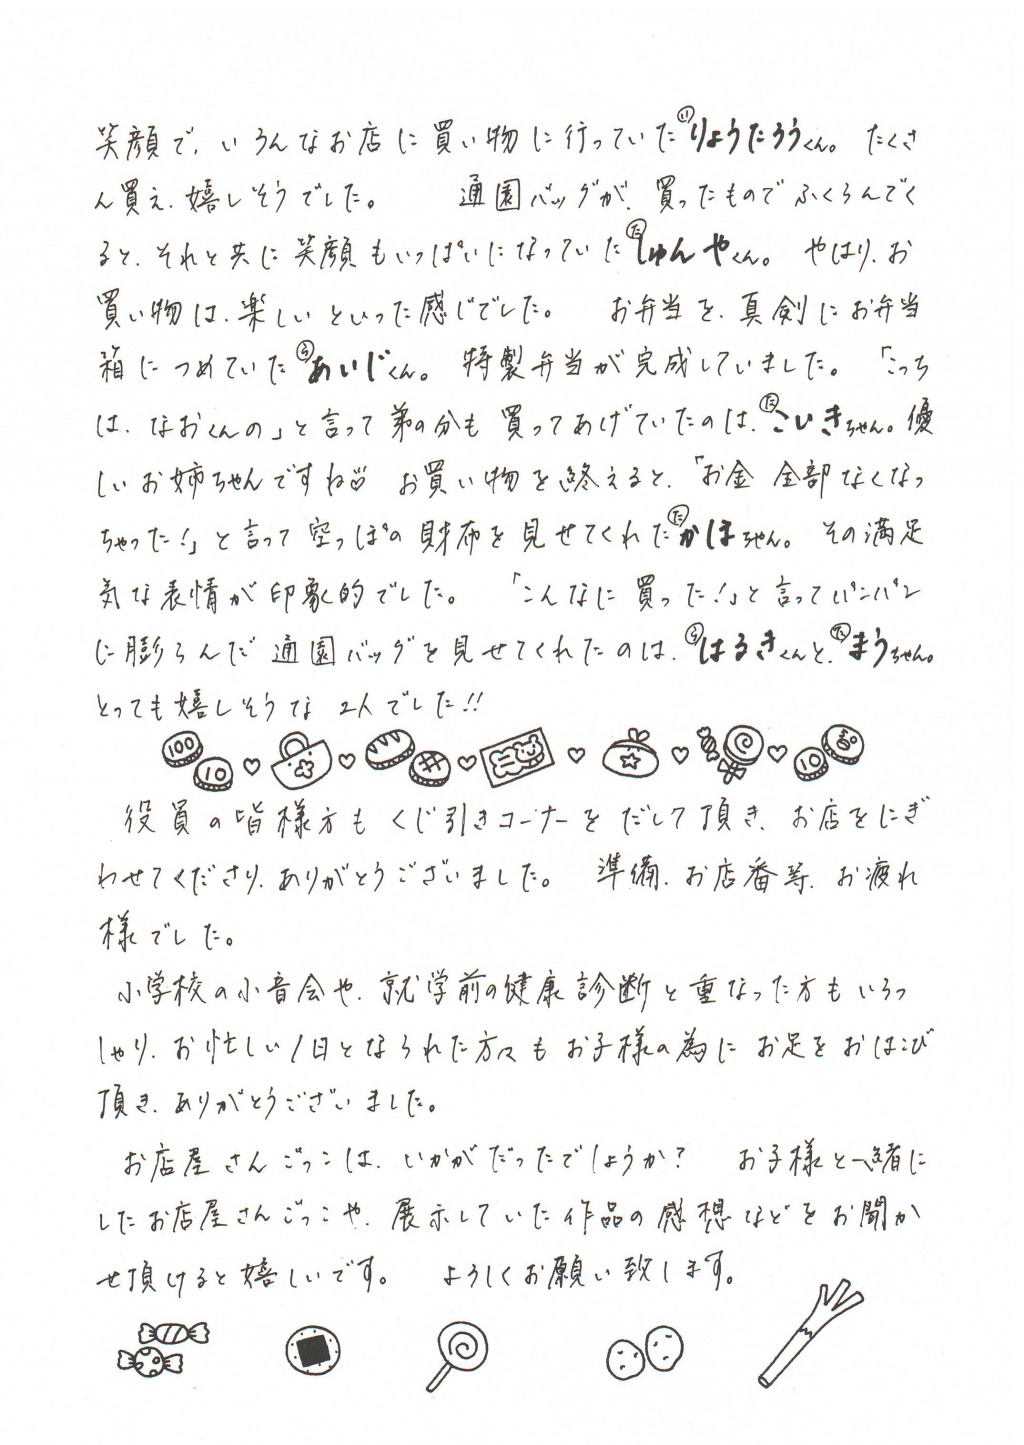 笑顔で、いろんなお店に買い物に行っていた㋑りょうたろうくん。 たくさ
ん買え、嬉しそうでした。 通園バッグが、買ったものでふくらんでく
ると、それと共に笑顔もいっぱいになっていた㋟しゅんやくん。 やはり、お
買い物は、楽しいといった感じでした。 お弁当を、真剣にお弁当
箱につめていたあいじくん。 特製弁当が完成していました。 「こっち
は、なおくんの」と言って弟の分も買ってあげていたのは、㋟こいきちゃん。優
しいお姉ちゃんですね♡ お買い物を終えると、「お金全部なくなっ
ちゃった!」と言って空っぽの財布を見せてくれた㋟かほちゃん。 その満足
気な表情が印象的でした。 「こんなに買った!」と言ってパンパン
に膨らんだ通園バッグを見せてくれたのは、はるきくんと、㋟まうちゃん。
とっても嬉しそうな2人でした!!
100 10 10
役員の皆様方もくじ引きコーナーをだして頂き、お店をにぎ
わせてくださり、ありがとうございました。 準備、お店番等、お疲れ
様でした。
小学校の小音会や、就学前の健康診断と重なった方もいらっ
しゃり、お忙しい1日となられた方々もお子様の為にお足をおはこび
頂き、ありがとうございました。
お店屋さんごっこは、いかがだったでしょうか? お子様と一緒に
したお店屋さんごっこや、展示していた作品の感想などをお聞か
せ頂けると嬉しいです。 ようしくお願い致します。